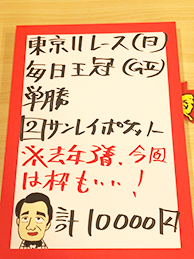 東京11レース(日)
毎日王冠(GⅡ)
単勝
2サンレイポケット
※去年3着、今回
は枠もいい!
計10000円